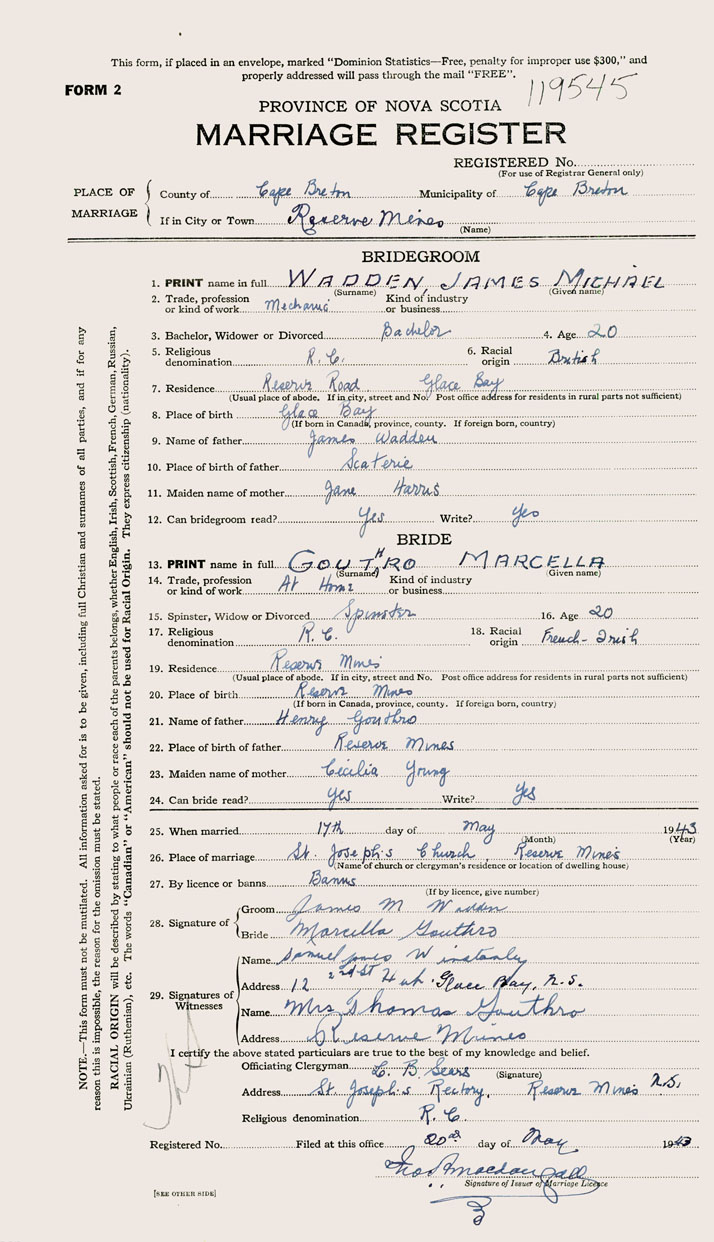 This form, if placed in an envelope, marked "Dominion Statistics—Free, penalty for improper use $300," and
properly addressed will pass through the mail "FREE".
FORM 2
119545
PROVINCE OF NOVA SCOTIA
MARRIAGE REGISTER
REGISTERED No.
(For use of Registrar General only)
PLACE OF MARRIAGE
County of Cape Breton Municipality of Cape Breton
If in City or Town Reserve Mines
(Name)
BRIDEGROOM
1. PRINT name in full WADDEN, JAMES MICHAEL
(Surname) (Given name)
2. Trade, profession or kind of work Mechanic Kind of industry or business
3. Bachelor, Widower or Divorced Bachelor 4. Age 20
5. Religious denomination R.C. 6. Racial origin British
7. Residence Reserve Road Glace Bay
(Usual place of abode. If in city, street and No. Post office address for residents in rural parts not sufficient)
8. Place of birth Glace Bay
(If born in Canada, province, county. If foreign born, country)
9. Name of father James Wadden
10. Place of birth of father Scaterie
11. Maiden name of mother Jane Harris
12. Can bridegroom read? Yes Write? Yes
BRIDE
13. PRINT name in full GOUTHRO MARCELLA
(Surname) (Given name)
14. Trade, profession or kind of work At Home Kind of industry or business
15. Spinster, Widow or Divorced Spinster 16. Age 20
17. Religious denomination R.C. 18. Racial origin French-Irish
19. Residence Reserve Mines
(Usual place of abode. If in city, street and No. Post office address for residents in rural parts not sufficient)
20. Place of birth Reserve Mines
(If born in Canada, province, county. If foreign born, country)
21. Name of father Henry Gouthro
22. Place of birth of father Reserve Mines
23. Maiden name of mother Cecilia Young
24. Can bride read? Yes Write? Yes
25. When married 17th day of May 1943
(Month) (Year)
26. Place of marriage St. Joseph's Church, Reserve Mines
(Name of church or clergyman's residence or location of dwelling house)
27. By licence or banns Banns
(If by licence, give number)
28. Signature of
Groom James M Wadden
Bride Marcella Gouthro
29. Signatures of Witnesses
Name Samuel Jones Winstanly
Address 12 2nd St Glace Bay, N.S.
Name Mrs Thomas Gouthro
Address Reserve Mines
I certify the above stated particulars are true to the best of my knowledge and belief.
Officiating Clergyman C. B. Sears
(Signature)
Address St. Joseph's Rectory, Reserve Mines N.S.
Religious denomination R.C.
Registered No. Filed at this office 20 day of May 1943
Signature of Issuer of Marriage Licence
[SEE OTHER SIDE]
NOTE.—This form must not be mutilated. All information asked for is to be given, including full Christian and surnames of all parties, and if for any
reason this is impossible, the reason for the omission must be stated.
RACIAL ORIGIN will be described by stating to what people or race each of the parents belongs, whether English, Irish, Scottish, French, German, Russian,
Ukrainian (Ruthenian), etc. The words "Canadian" or "American" should not be used for Racial Origin. They express citizenship (nationality).